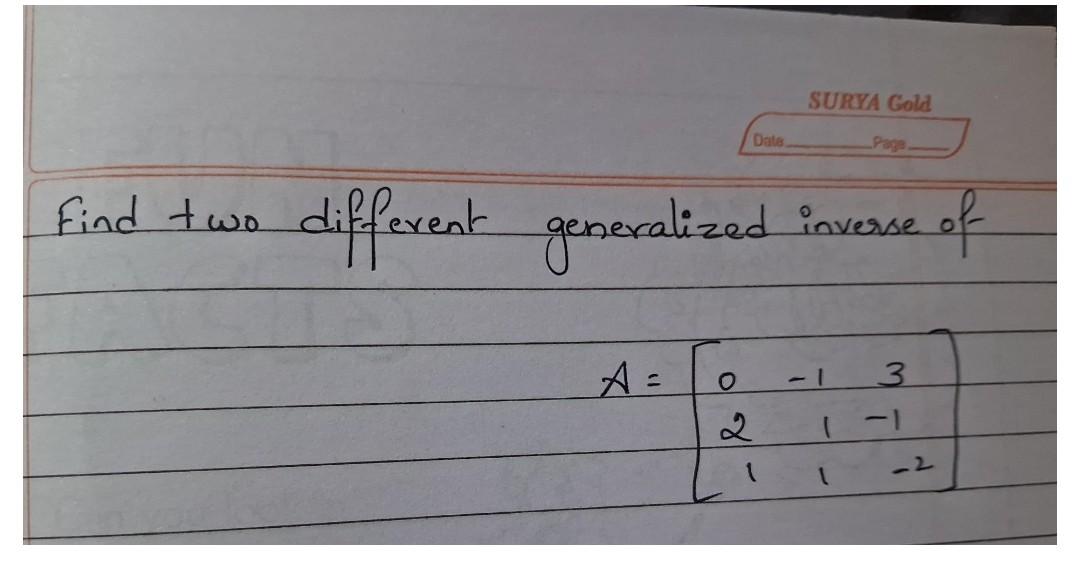 SURYA Gold
Date Page
Find two different generalized inverse of
A = [ 0 -1 3
2 1 -1
1 1 -2 ]